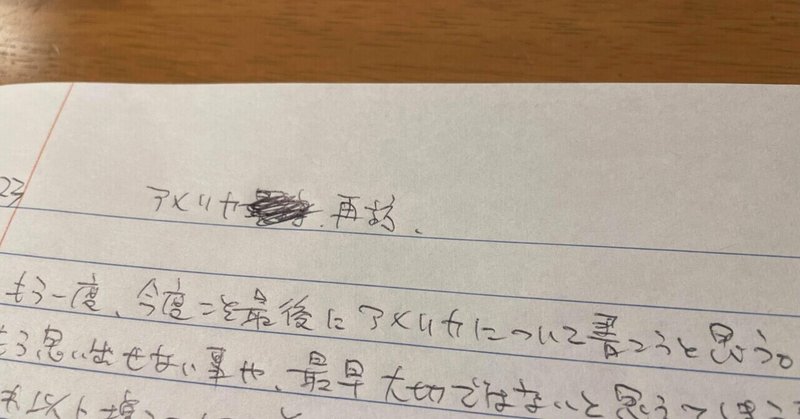 23
アメリカ 再訪、
もう一度、今度こそ最後にアメリカについて書こうと思う。
もう思い出せない事や、最早大切ではないと思って